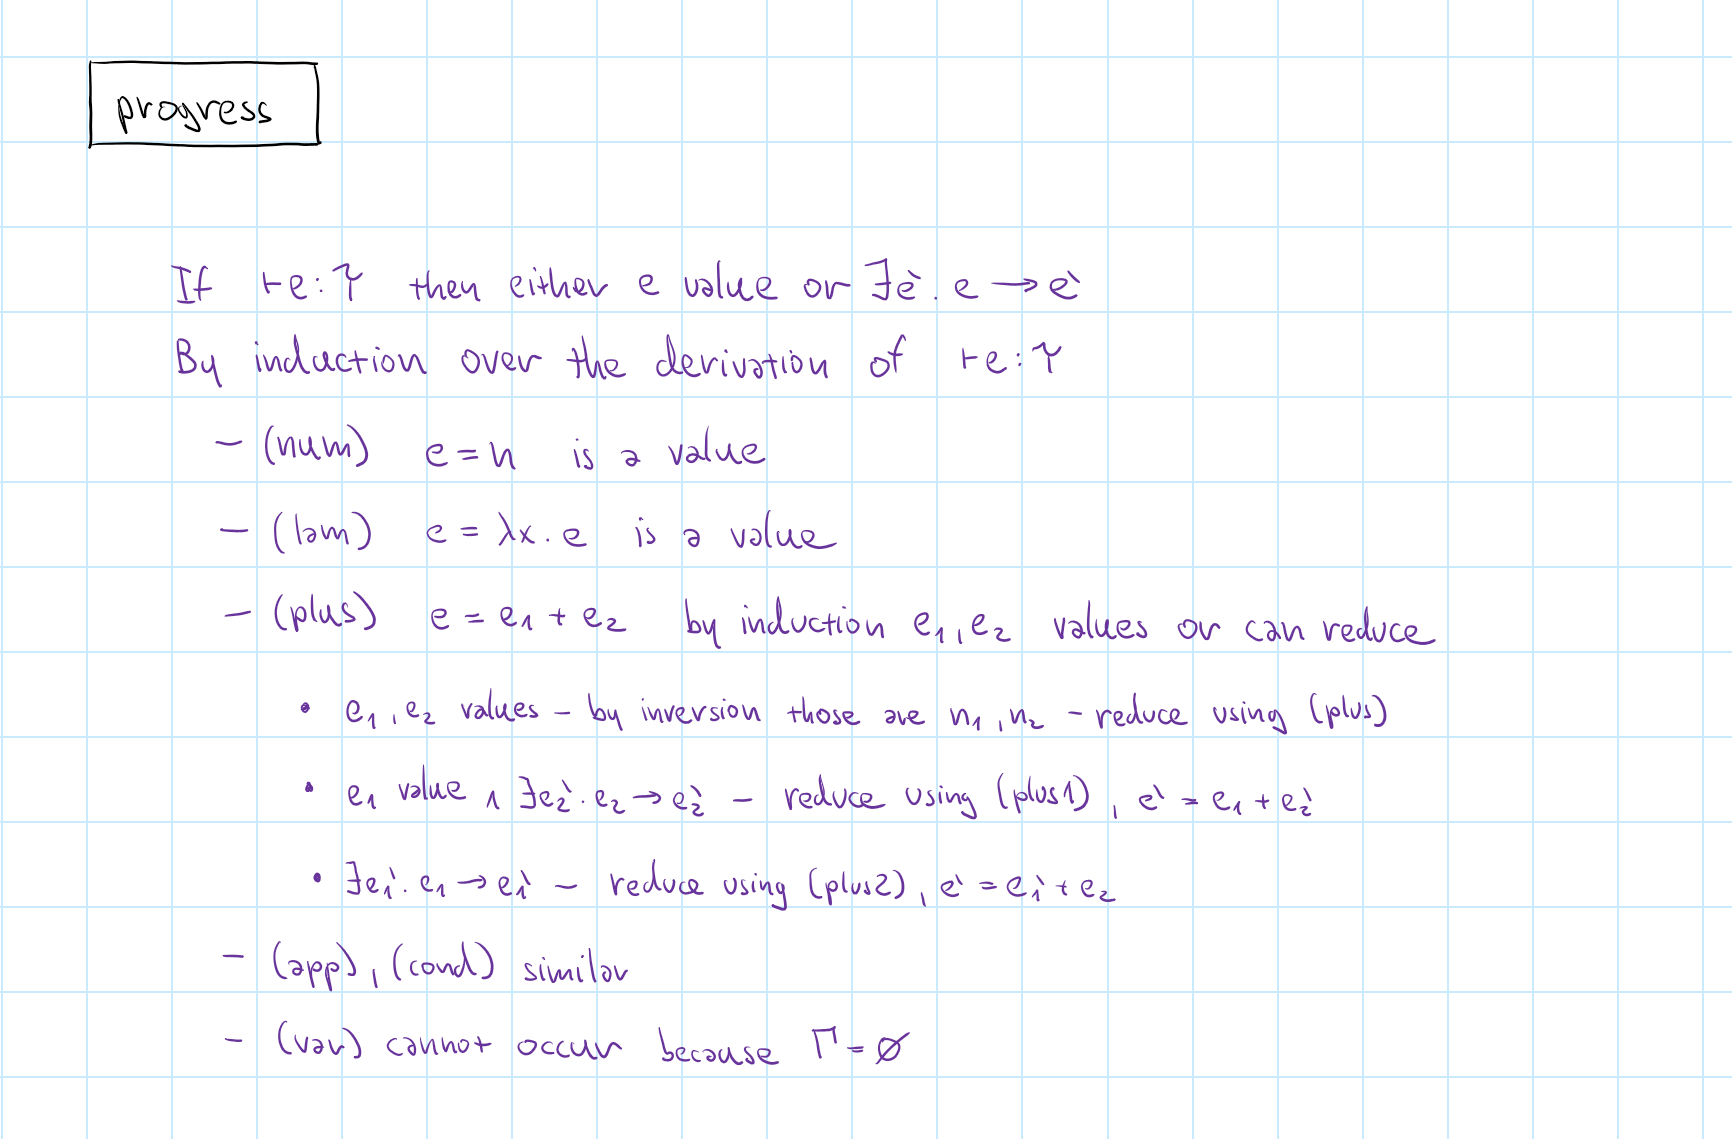 progress
If ⊢e:τ then either e value or ∃e`. e → e`
By induction over the derivation of ⊢e:τ
– (num) e = n is a value
– (lam) e = λx. e is a value
– (plus) e = e₁ + e₂ by induction e₁, e₂ values or can reduce
• e₁, e₂ values – by inversion those are n₁, n₂ – reduce using (plus)
• e₁ value ∧ ∃e₂`. e₂ → e₂` – reduce using (plus1), e` = e₁ + e₂`
• ∃e₁`. e₁ → e₁` – reduce using (plus2), e` = e₁` + e₂
– (app), (cond) similar
– (var) cannot occur because Γ = ∅